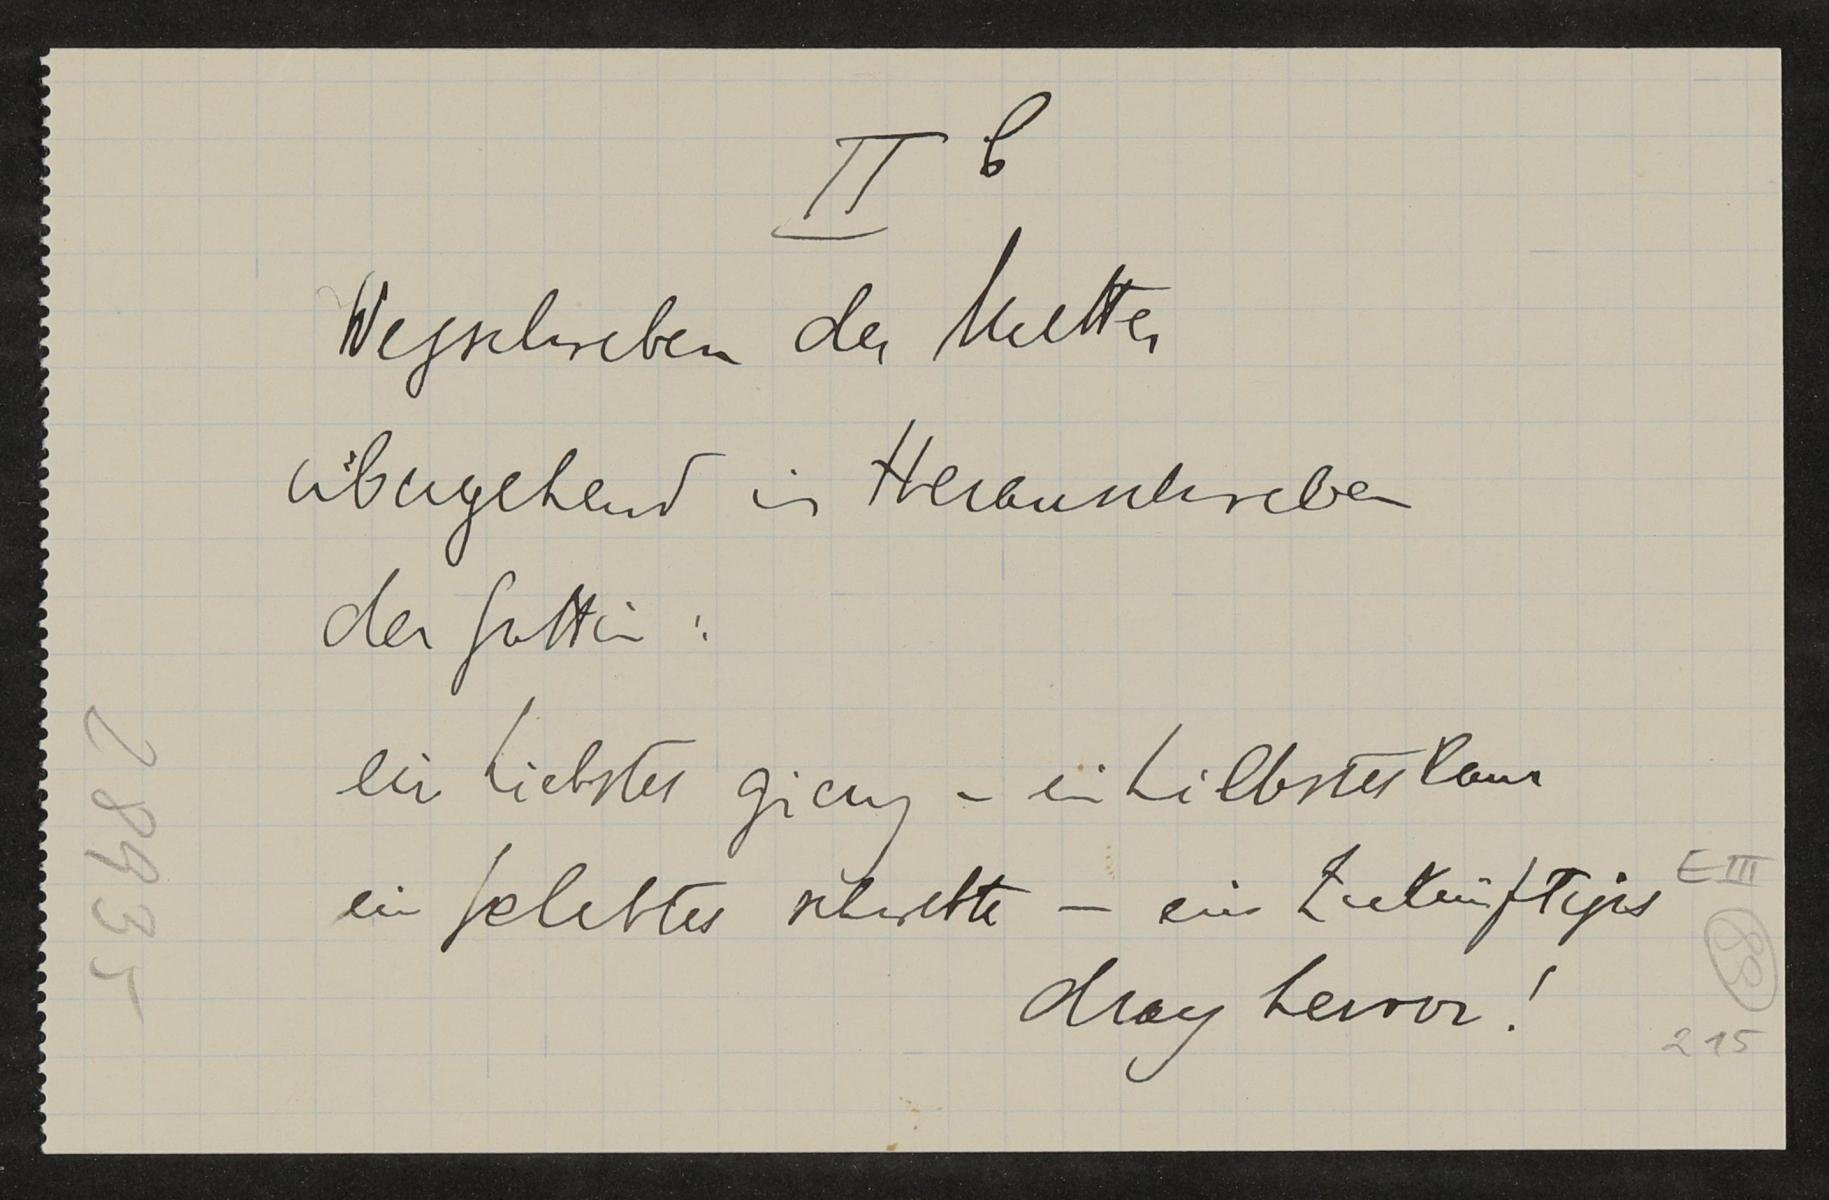 II b
Wegschweben der Mutter
übergehend in Heranschweben
der Gattin:
ein Liebstes gieng – ein Liebstes kam
ein Gelebtes schwebte – ein Zukünftiges
drang hervor!
E III
88
215
28935